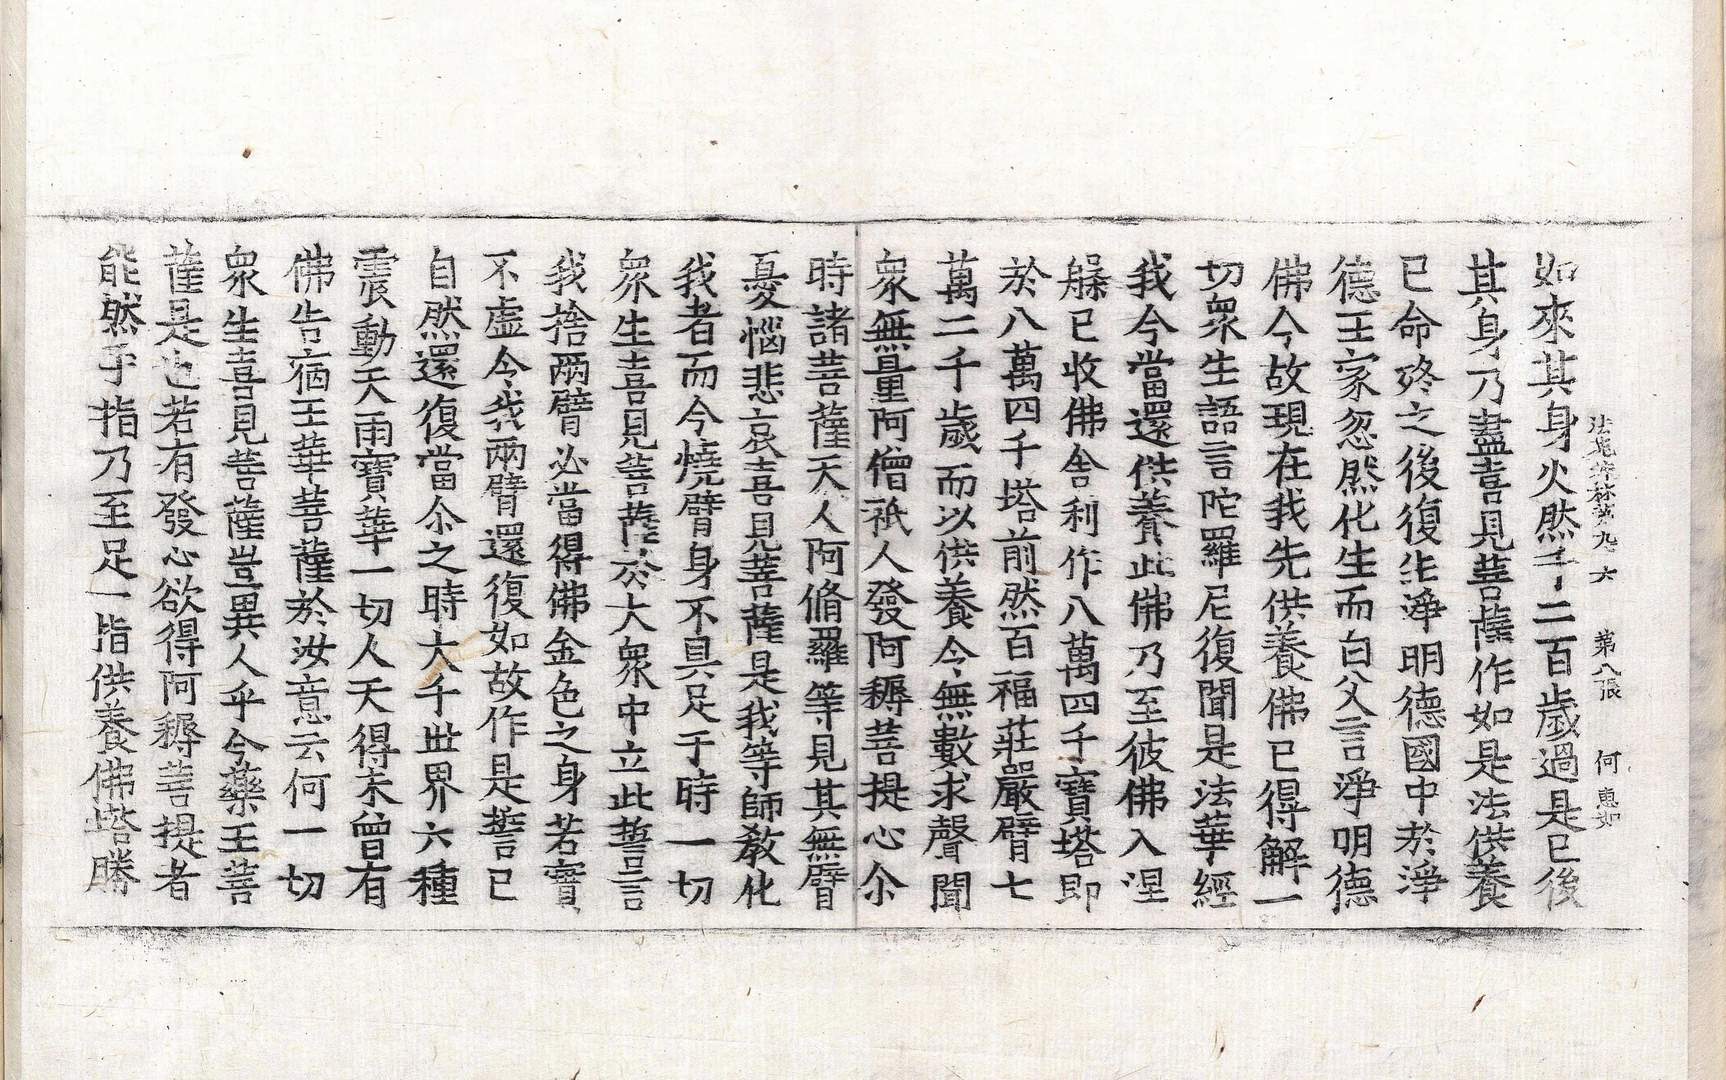 法苑珠林第九六 第八張 何惠如
如來其身火然千二百歲過是已後
其身乃盡喜見菩薩作如是法供養
已命終之後復生淨明德國中於淨
德王家忽然化生而白父言淨明德
佛今故現在我先供養佛已得解一
切衆生語言陀羅尼復聞是法華經
我今當還供養此佛乃至彼佛入涅
槃已收佛舍利作八萬四千寶塔即
於八萬四千塔前然百福莊嚴臂七
萬二千歲而以供養令無數求聲聞
衆無量阿僧祇人發阿耨菩提心尒
時諸菩薩天人阿脩羅等見其無臂
憂惱悲哀喜見菩薩是我等師教化
我者而今燒臂身不具足于時一切
衆生喜見菩薩於大衆中立此誓言
我捨兩臂必當得佛金色之身若實
不虛令我兩臂還復如故作是誓已
自然還復當尒之時大千世界六種
震動天雨寶華一切人天得未曾有
佛告宿王華菩薩於汝意云何一切
衆生喜見菩薩豈異人乎今藥王菩
薩是也若有發心欲得阿耨菩提者
能然手指乃至足一指供養佛塔勝